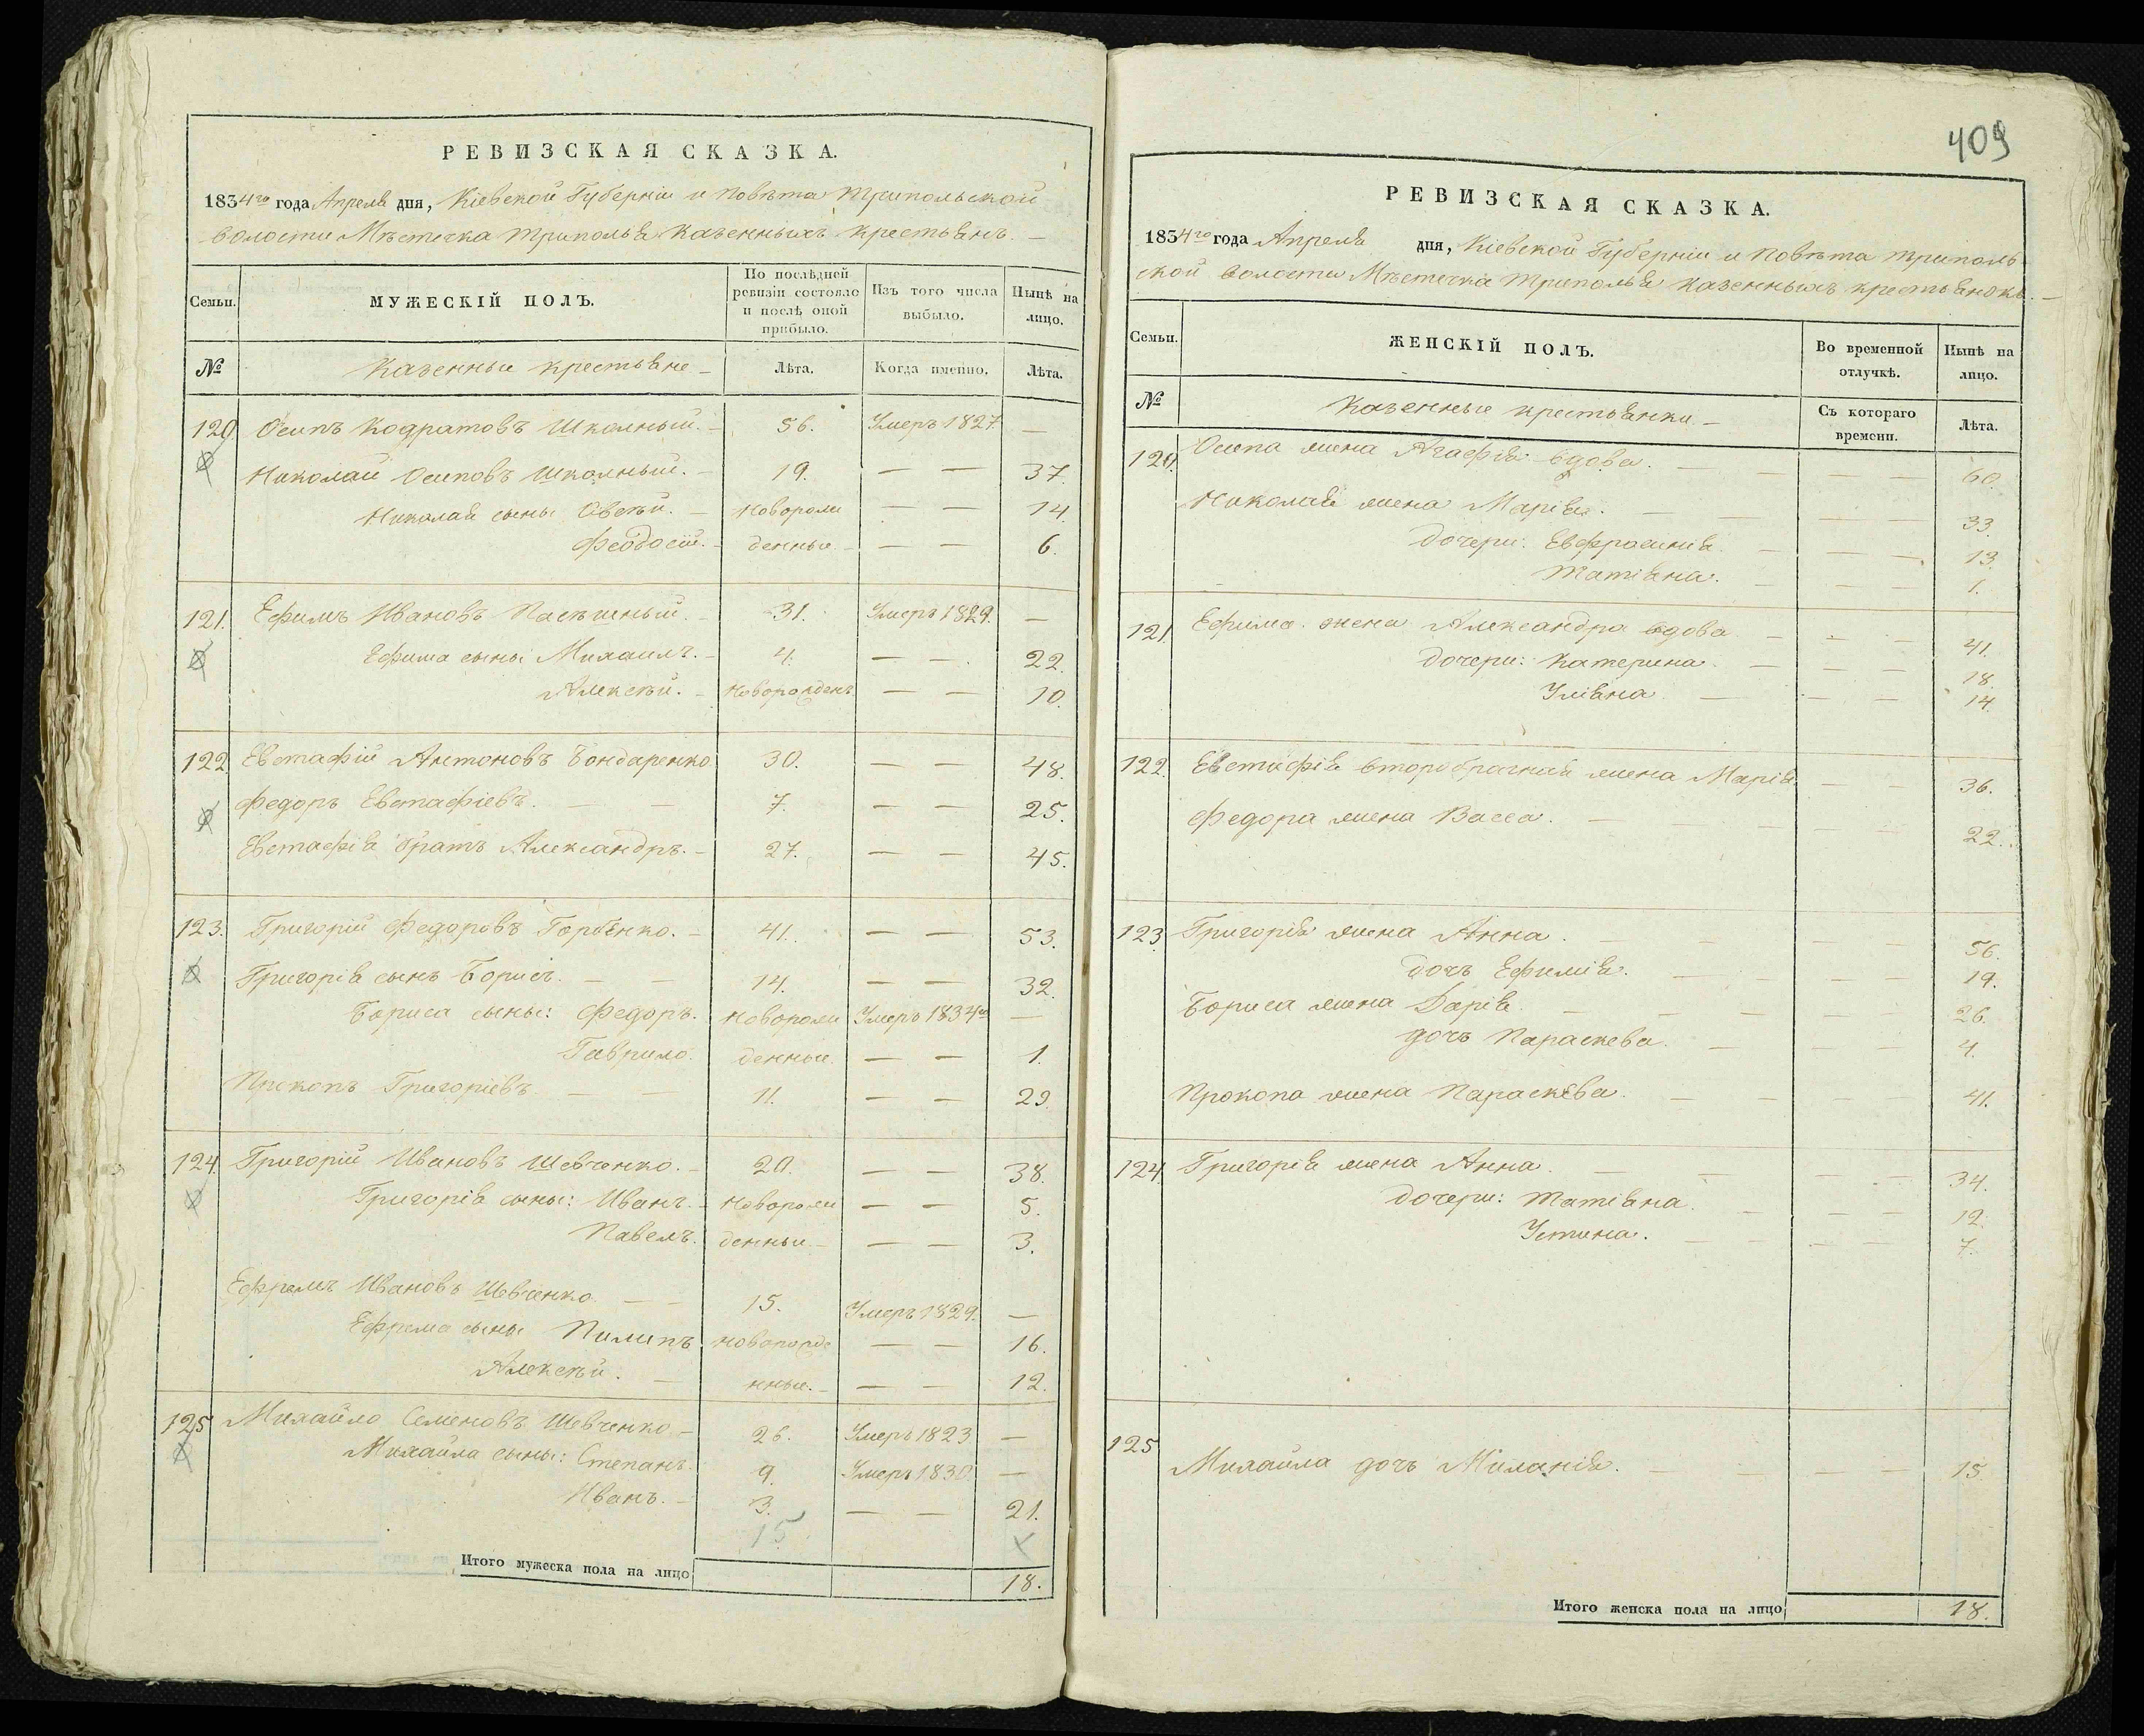 РЕВИЗСКАЯ СКАЗКА.
1834го года Апреля дня, Кіевской Губерніи и Повѣта Трипольской
волости Мѣстечка Триполья Казенныхъ крестьянъ. —
Семьи. МУЖЕСКІЙ ПОЛЪ. По послѣдней ревизіи состояло и послѣ оной прибыло. Изъ того числа выбыло. Нынѣ на лицо.
№ Казенные крестьяне — Лѣта. Когда именно. Лѣта.
120 Осипъ Кодратовъ Школный. — 56. Умеръ 1827 —
Николай Осиповъ Школный. — 19. — — 37.
Николая сыны Овсѣй. — Новорож — — 14.
Феодосій. — денные — — — 6.
121. Ефимъ Ивановъ Пасѣшный. — 31. Умеръ 1829. —
Ефима сыны Михаилъ. — 4. — — 22.
Алексѣй. — Новорожденъ — — 10.
122. Евстафій Антоновъ Бондаренко 30. — — 48.
Федоръ Евстафіевъ. — — 7. — — 25.
Евстафія братъ Александръ. — 27. — — 45.
123. Григорій Федоровъ Горбенко. — 41. — — 53.
Григорія сынъ Борисъ. — — 14. — — 32.
Бориса сыны: Федоръ. Новорож Умеръ 1834го —
Гаврило. денные. — — 1.
Прокопъ Григоріевъ. — — 11. — — 29.
124. Григорій Ивановъ Шевченко. — 20. — — 38.
Григорія сыны: Иванъ. — Новорож — — 5.
Павелъ. денные — — — 3.
Ефремъ Ивановъ Шевченко. — — 15. Умеръ 1829. —
Ефрема сыны Пилипъ Новорожде — — 16.
Алексѣй. — нные. — — — 12.
125 Михайло Семеновъ Шевченко — 26. Умеръ 1823 —
Михайла сыны: Степанъ. 9. Умеръ 1830 —
Иванъ. — 3. — — 21.
15
Итого мужеска пола на лицо 18.
409
РЕВИЗСКАЯ СКАЗКА.
1834го года Апреля дня, Кіевской Губерніи и Повѣта Триполь
ской волости Мѣстечка Триполья Казенныхъ крестьянокъ. —
Семьи. ЖЕНСКІЙ ПОЛЪ. Во временной отлучкѣ. Нынѣ на лицо.
№ Казенные крестьянки — Съ котораго времени. Лѣта.
120. Осипа жена Агафія вдова. — — — 60.
Николая жена Марія. — — — — 33.
Дочери: Евфросинія. — — — 13.
Татіяна. — — — 1.
121. Ефима жена Александра вдова — — — 41.
Дочери: Катерина. — — — 18.
Уліяна. — — — 14.
122. Евстафія второбрачная жена Марія. — — 36.
Федора жена Васса. — — — — 22.
123. Григорія жена Анна. — — — — 56.
Дочъ Ефимія. — — — — 19.
Бориса жена Дарія. — — — — — 26.
дочъ Параскева. — — — — 4.
Прокопа жена Параскева. — — — — 41.
124. Григорія жена Анна. — — — — 34.
Дочери: Татіяна. — — — 12.
Устина. — — — — 7.
125. Михайла дочъ Миланія. — — — — 15.
Итого женска пола на лицо 18.